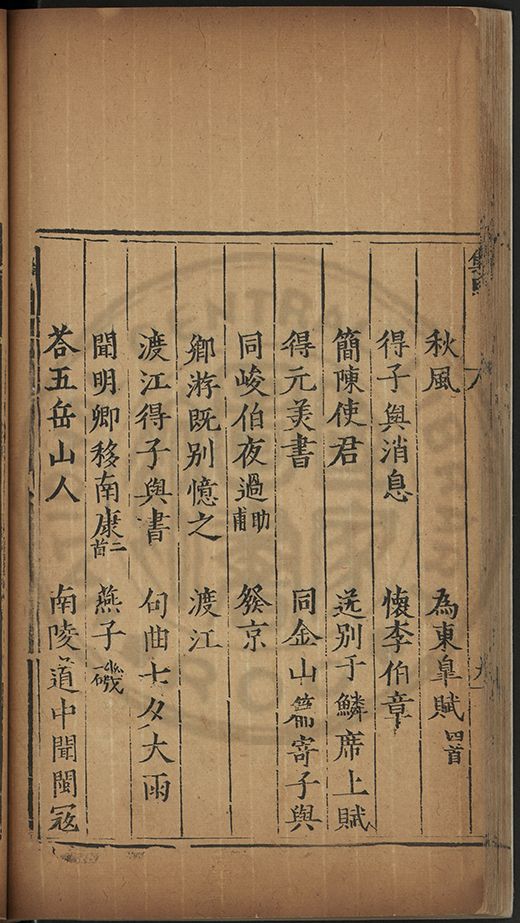 秋風　為東臯賦四首
得子與消息　懷李伯章
簡陳使君　送別于鱗席上賦
得元美書　同金山篇寄子與
同峻伯夜過助甫　發京
鄉游既別憶之　渡江
渡江得子與書　句曲七夕大雨
聞明卿移南康二首　燕子磯
荅五岳山人　南陵道中聞閩寇